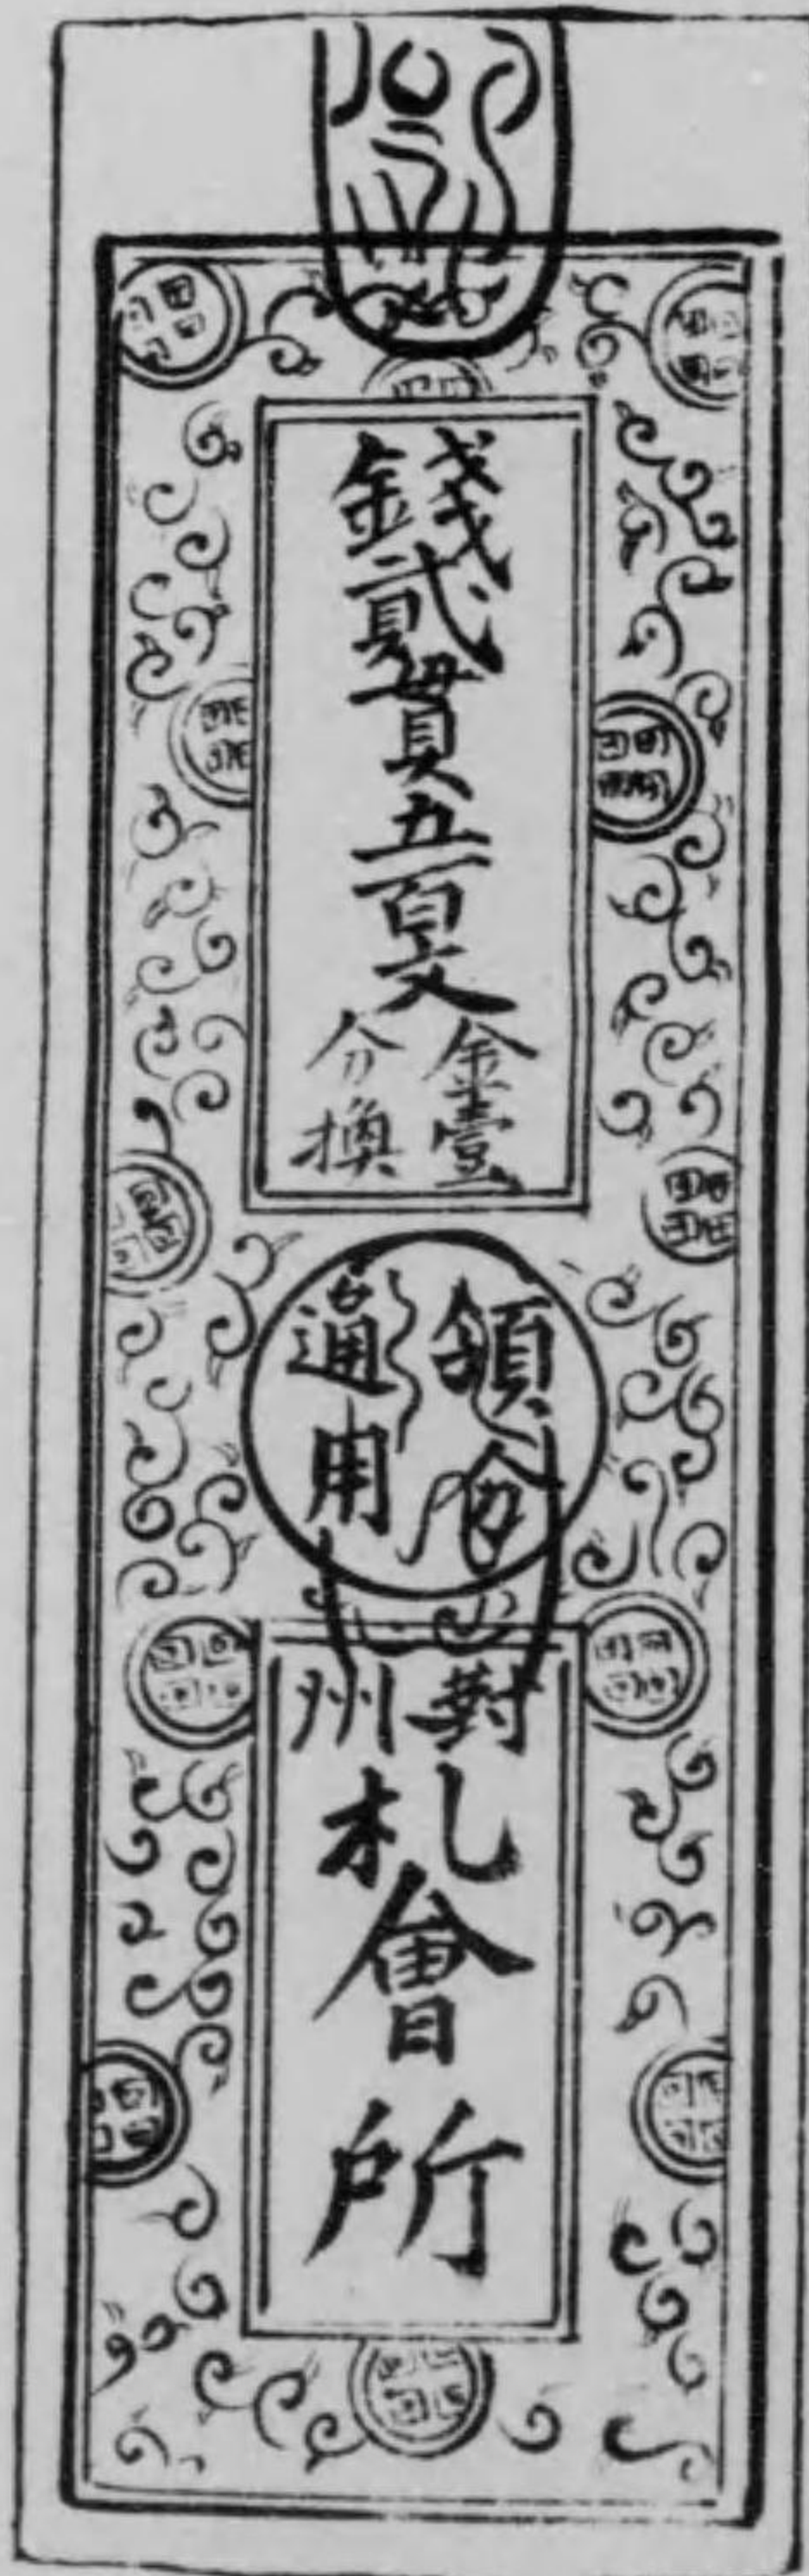 錢貳貫五百文
金壹
分換
領分
通用
對州
札會所